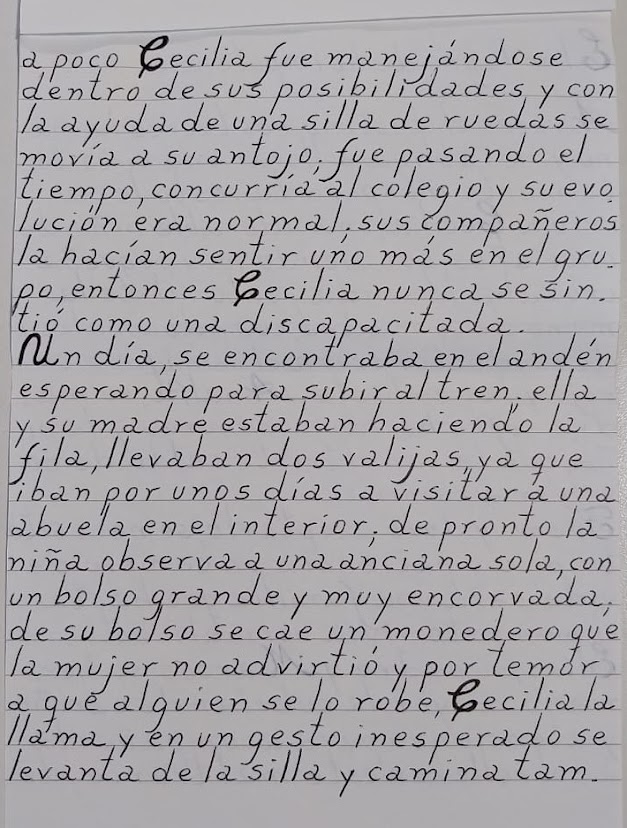 a poco Cecilia fue manejándose
dentro de sus posibilidades y con
la ayuda de una silla de ruedas se
movía a su antojo; fue pasando el
tiempo, concurría al colegio y su evo.
lución era normal; sus compañeros
la hacían sentir uno más en el gru.
po, entonces Cecilia nunca se sin.
tió como una discapacitada.
Un día, se encontraba en el andén
esperando para subir al tren; ella
y su madre estaban haciendo la
fila, llevaban dos valijas, ya que
iban por unos días a visitar a una
abuela en el interior; de pronto la
niña observa a una anciana sola, con
un bolso grande y muy encorvada;
de su bolso se cae un monedero que
la mujer no advirtió y por temor
a que alguien se lo robe, Cecilia la
llama y en un gesto inesperado se
levanta de la silla y camina tam.